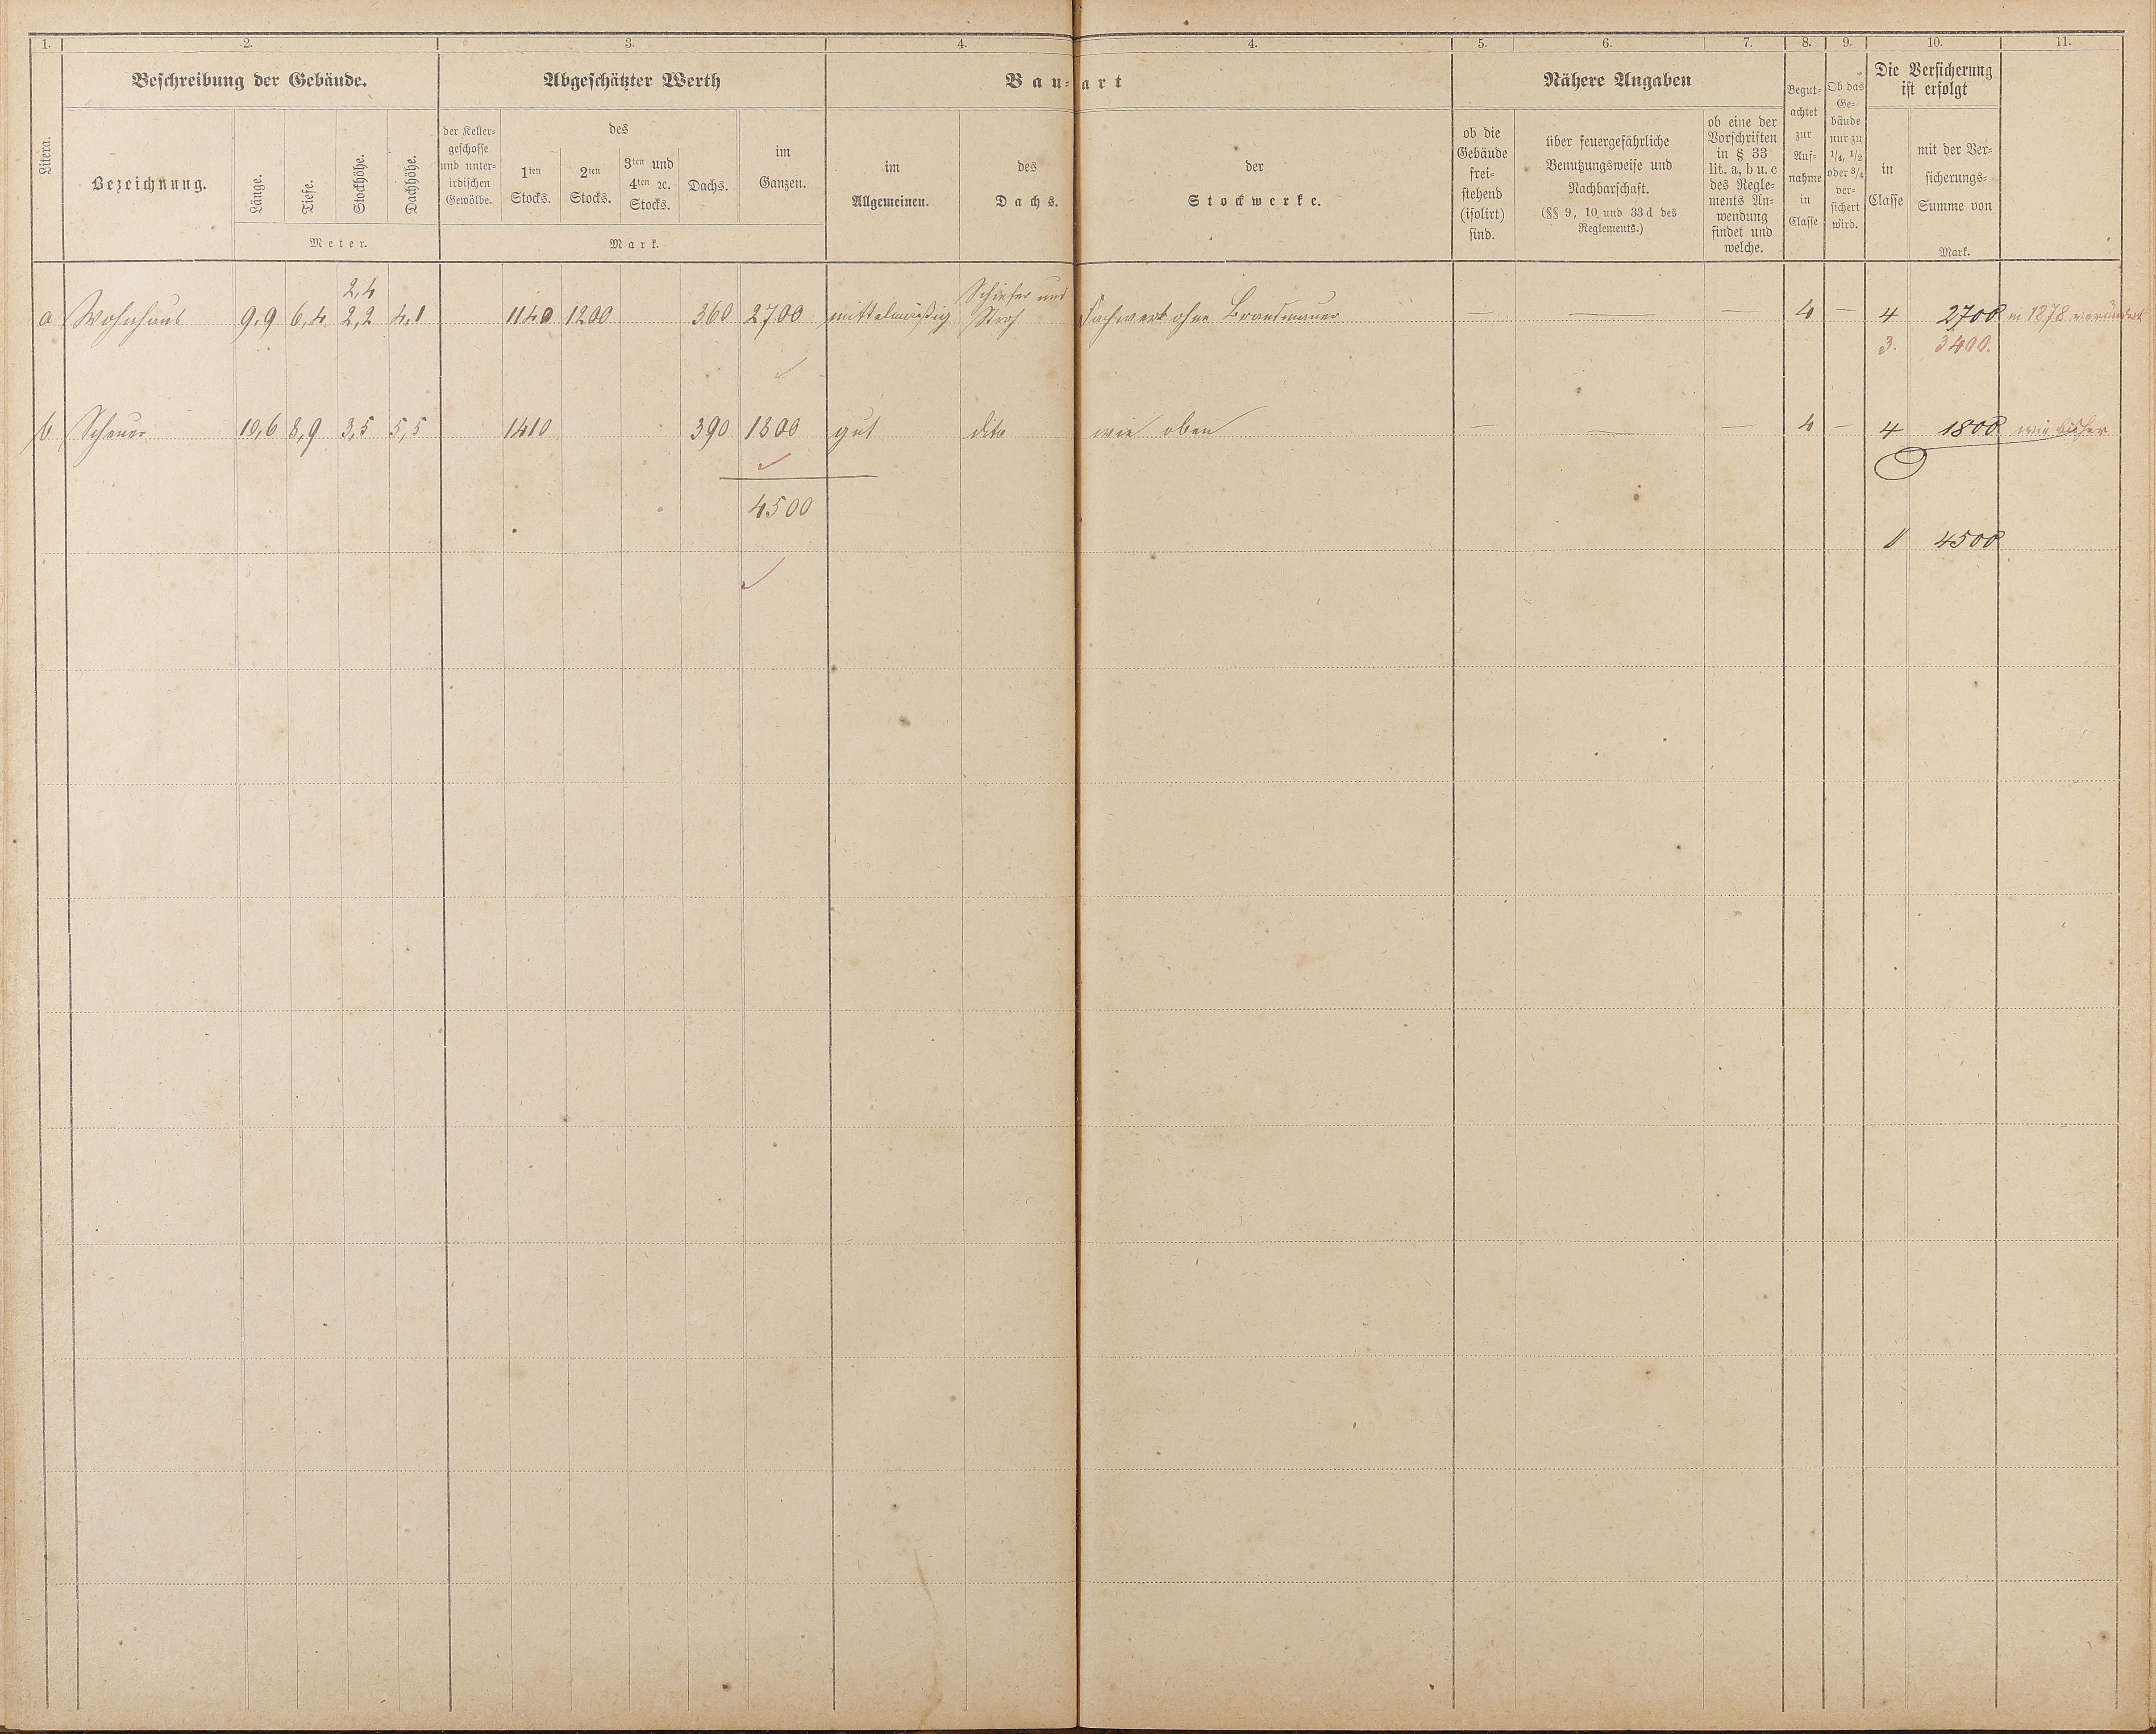 1. 2. 3. 4. 4. 5. 6. 7. 8. 9. 10. 11.
Litera.
Beschreibung der Gebäude.
Bezeichnung.
Länge.
Tiefe.
Stockhöhe.
Dachhöhe.
Meter.
Abgeschätzter Werth
der Keller-
geschosse
und unter-
irdischen
Gewölbe.
des
1ten
Stocks.
2ten
Stocks.
3ten und
4ten ꝛc.
Stocks.
Dachs.
im
Ganzen.
Mark.
Bau-art
im
Allgemeinen.
des
Dachs.
der
Stockwerke.
Nähere Angaben
ob die
Gebäude
frei-
stehend
(isolirt)
sind.
über feuergefährliche
Benutzungsweise und
Nachbarschaft.
(§§ 9, 10 und 33 d des
Reglements.)
ob eine der
Vorschriften
in § 33
lit. a, b u. c
des Regle-
ments An-
wendung
findet und
welche.
Begut-
achtet
zur
Auf-
nahme
in
Classe
Ob das
Ge-
bäude
nur zu
1/4, 1/2
oder 3/4
ver-
sichert
wird.
Die Versicherung
ist erfolgt
in
Classe
mit der Ver-
sicherungs-
Summe von
Mark.
2,4
Schiefer und
a Wohnhaus 9,9 6,4 2,2 4,1 1140 1200 360 2700 mittelmäßig Stroh Fachwerk ohne Brandmauer — — — 4 — 4 2700 in 1878 verändert
3. 3400.
b Scheuer 10,6 8,9 3,5 5,5 1410 390 1800 gut dito wie oben — — — 4 — 4 1800 wie bisher
4500
4500